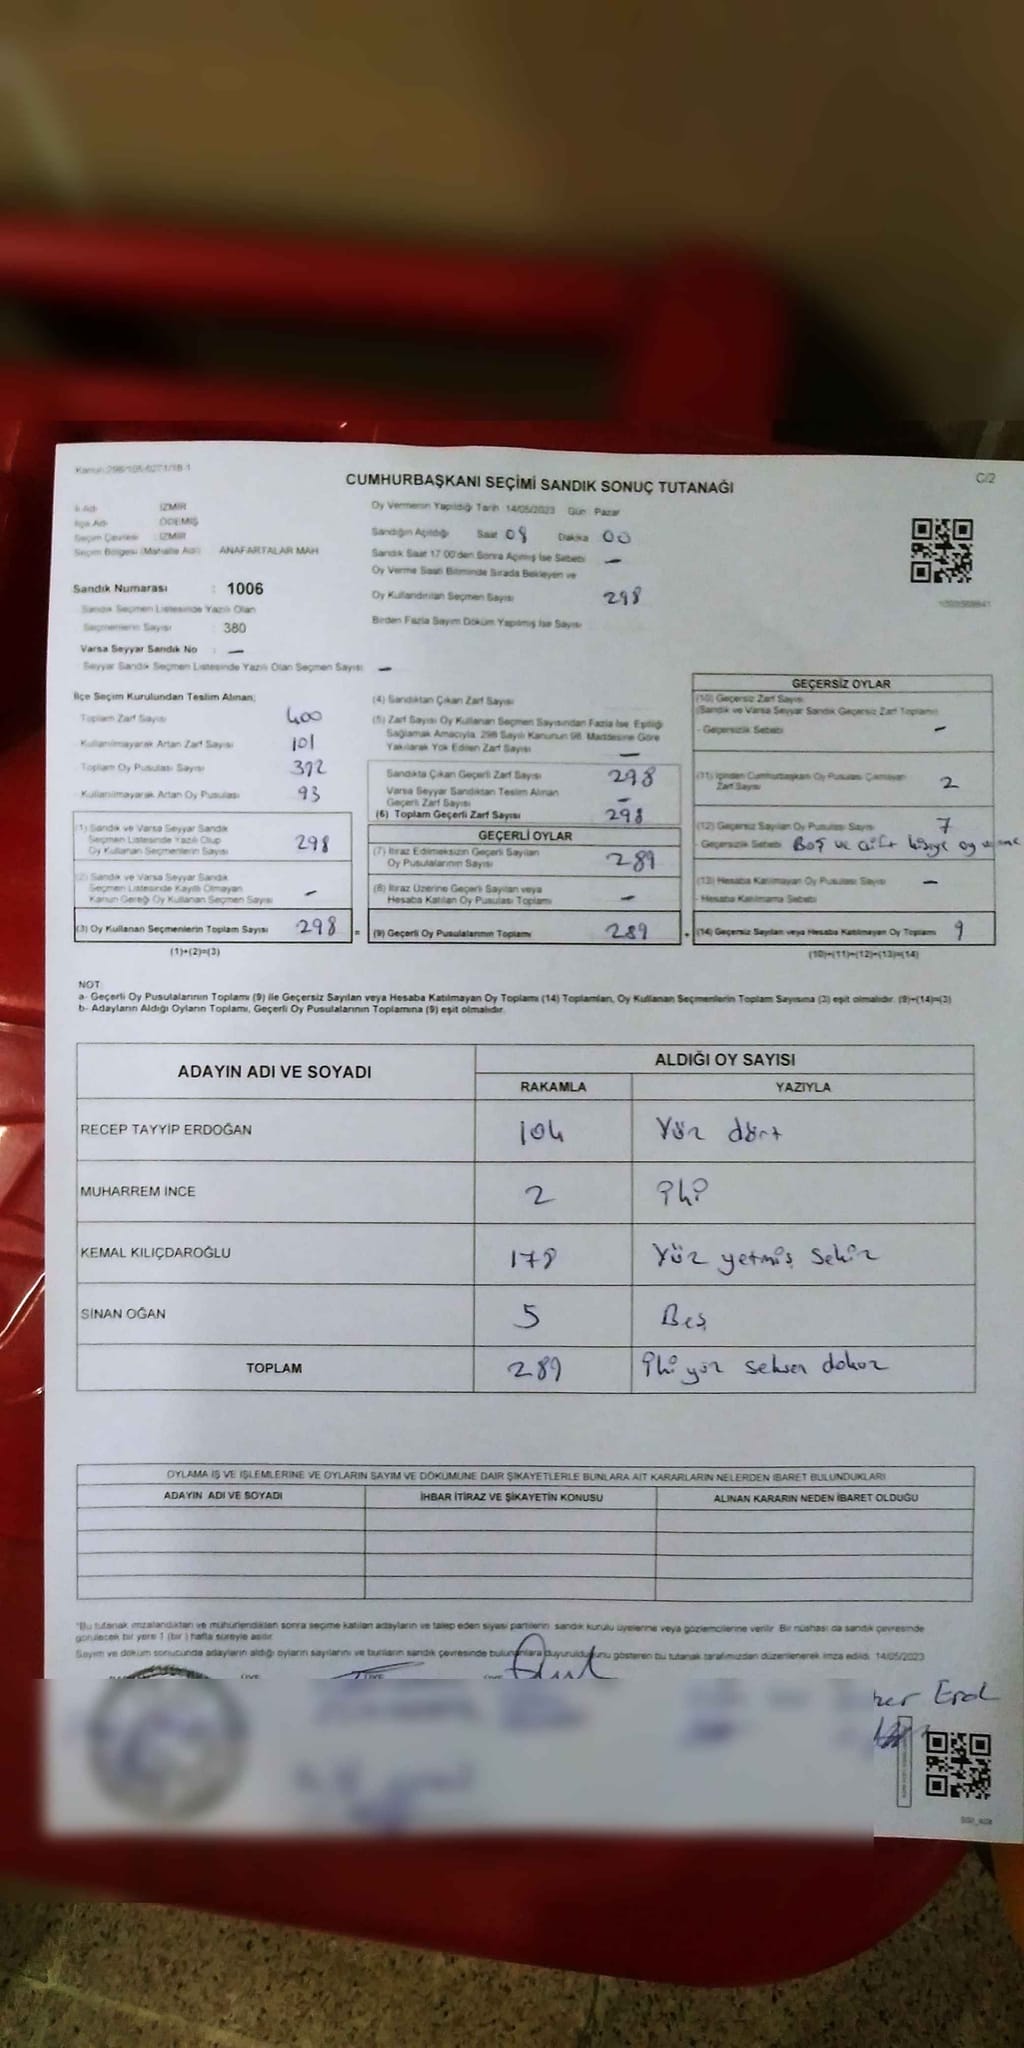 CUMHURBAŞKANI SEÇİMİ SANDIK SONUÇ TUTANAĞI
C/2
İl Adı : İZMİR
İlçe Adı : ÖDEMİŞ
Seçim Çevresi : İZMİR
Seçim Bölgesi (Mahalle Adı) ANAFARTALAR MAH
Sandık Numarası : 1006
Sandık Seçmen Listesinde Yazılı Olan
Seçmenlerin Sayısı : 380
Varsa Seyyar Sandık No : —
Seyyar Sandık Seçmen Listesinde Yazılı Olan Seçmen Sayısı : —
Oy Vermenin Yapıldığı Tarih 14/05/2023 Gün Pazar
Sandığın Açıldığı Saat 08 Dakika 00
Sandık Saat 17.00'den Sonra Açılmış İse Sebebi —
Oy Verme Saati Bitiminde Sırada Bekleyen ve
Oy Kullandırılan Seçmen Sayısı 298
Birden Fazla Sayım Döküm Yapılmış İse Sayısı
İlçe Seçim Kurulundan Teslim Alınan;
Toplam Zarf Sayısı 400
- Kullanılmayarak Artan Zarf Sayısı 101
Toplam Oy Pusulası Sayısı 392
- Kullanılmayarak Artan Oy Pusulası 93
(1) Sandık ve Varsa Seyyar Sandık
Seçmen Listesinde Yazılı Olup
Oy Kullanan Seçmenlerin Sayısı 298
(2) Sandık ve Varsa Seyyar Sandık
Seçmen Listesinde Kayıtlı Olmayan
Kanun Gereği Oy Kullanan Seçmen Sayısı —
(3) Oy Kullanan Seçmenlerin Toplam Sayısı 298 =
(1)+(2)=(3)
(4) Sandıktan Çıkan Zarf Sayısı
(5) Zarf Sayısı Oy Kullanan Seçmen Sayısından Fazla İse, Eşitliği
Sağlamak Amacıyla, 298 Sayılı Kanunun 98. Maddesine Göre
Yakılarak Yok Edilen Zarf Sayısı —
Sandıkta Çıkan Geçerli Zarf Sayısı 298
Varsa Seyyar Sandıktan Teslim Alınan
Geçerli Zarf Sayısı —
(6) Toplam Geçerli Zarf Sayısı 298
GEÇERLİ OYLAR
(7) İtiraz Edilmeksizin Geçerli Sayılan
Oy Pusulalarının Sayısı 289
(8) İtiraz Üzerine Geçerli Sayılan veya
Hesaba Katılan Oy Pusulası Toplamı —
(9) Geçerli Oy Pusulalarının Toplamı 289 +
GEÇERSİZ OYLAR
(10) Geçersiz Zarf Sayısı
(Sandık ve Varsa Seyyar Sandık Geçersiz Zarf Toplamı)
- Geçersizlik Sebebi —
(11) İçinden Cumhurbaşkanı Oy Pusulası Çıkmayan
Zarf Sayısı 2
(12) Geçersiz Sayılan Oy Pusulası Sayısı 7
- Geçersizlik Sebebi Boş ve çift kişiye oy verme
(13) Hesaba Katılmayan Oy Pusulası Sayısı —
- Hesaba Katılmama Sebebi
(14) Geçersiz Sayılan veya Hesaba Katılmayan Oy Toplamı 9
(10)+(11)+(12)+(13)=(14)
NOT:
a- Geçerli Oy Pusulalarının Toplamı (9) ile Geçersiz Sayılan veya Hesaba Katılmayan Oy Toplamı (14) Toplamları, Oy Kullanan Seçmenlerin Toplam Sayısına (3) eşit olmalıdır. (9)+(14)=(3)
b- Adayların Aldığı Oyların Toplamı, Geçerli Oy Pusulalarının Toplamına (9) eşit olmalıdır.
ADAYIN ADI VE SOYADI ALDIĞI OY SAYISI
RAKAMLA YAZIYLA
RECEP TAYYİP ERDOĞAN 104 Yüz dört
MUHARREM İNCE 2 İki
KEMAL KILIÇDAROĞLU 178 Yüz yetmiş sekiz
SİNAN OĞAN 5 Beş
TOPLAM 289 İki yüz seksen dokuz
OYLAMA İŞ VE İŞLEMLERİNE VE OYLARIN SAYIM VE DÖKÜMÜNE DAİR ŞİKAYETLERLE BUNLARA AİT KARARLARIN NELERDEN İBARET BULUNDUKLARI
ADAYIN ADI VE SOYADI İHBAR İTİRAZ VE ŞİKAYETİN KONUSU ALINAN KARARIN NEDEN İBARET OLDUĞU
*Bu tutanak imzalandıktan ve mühürlendikten sonra seçime katılan adayların ve talep eden siyasi partilerin sandık kurulu üyelerine veya gözlemcilerine verilir. Bir nüshası da sandık çevresinde
görülecek bir yere 1 (bir) hafta süreyle asılır.
Sayım ve döküm sonucunda adayların aldığı oyların sayılarını ve bunların sandık çevresinde bulunanlara duyurulduğunu gösteren bu tutanak tarafımızdan düzenlenerek imza edildi. 14/05/2023